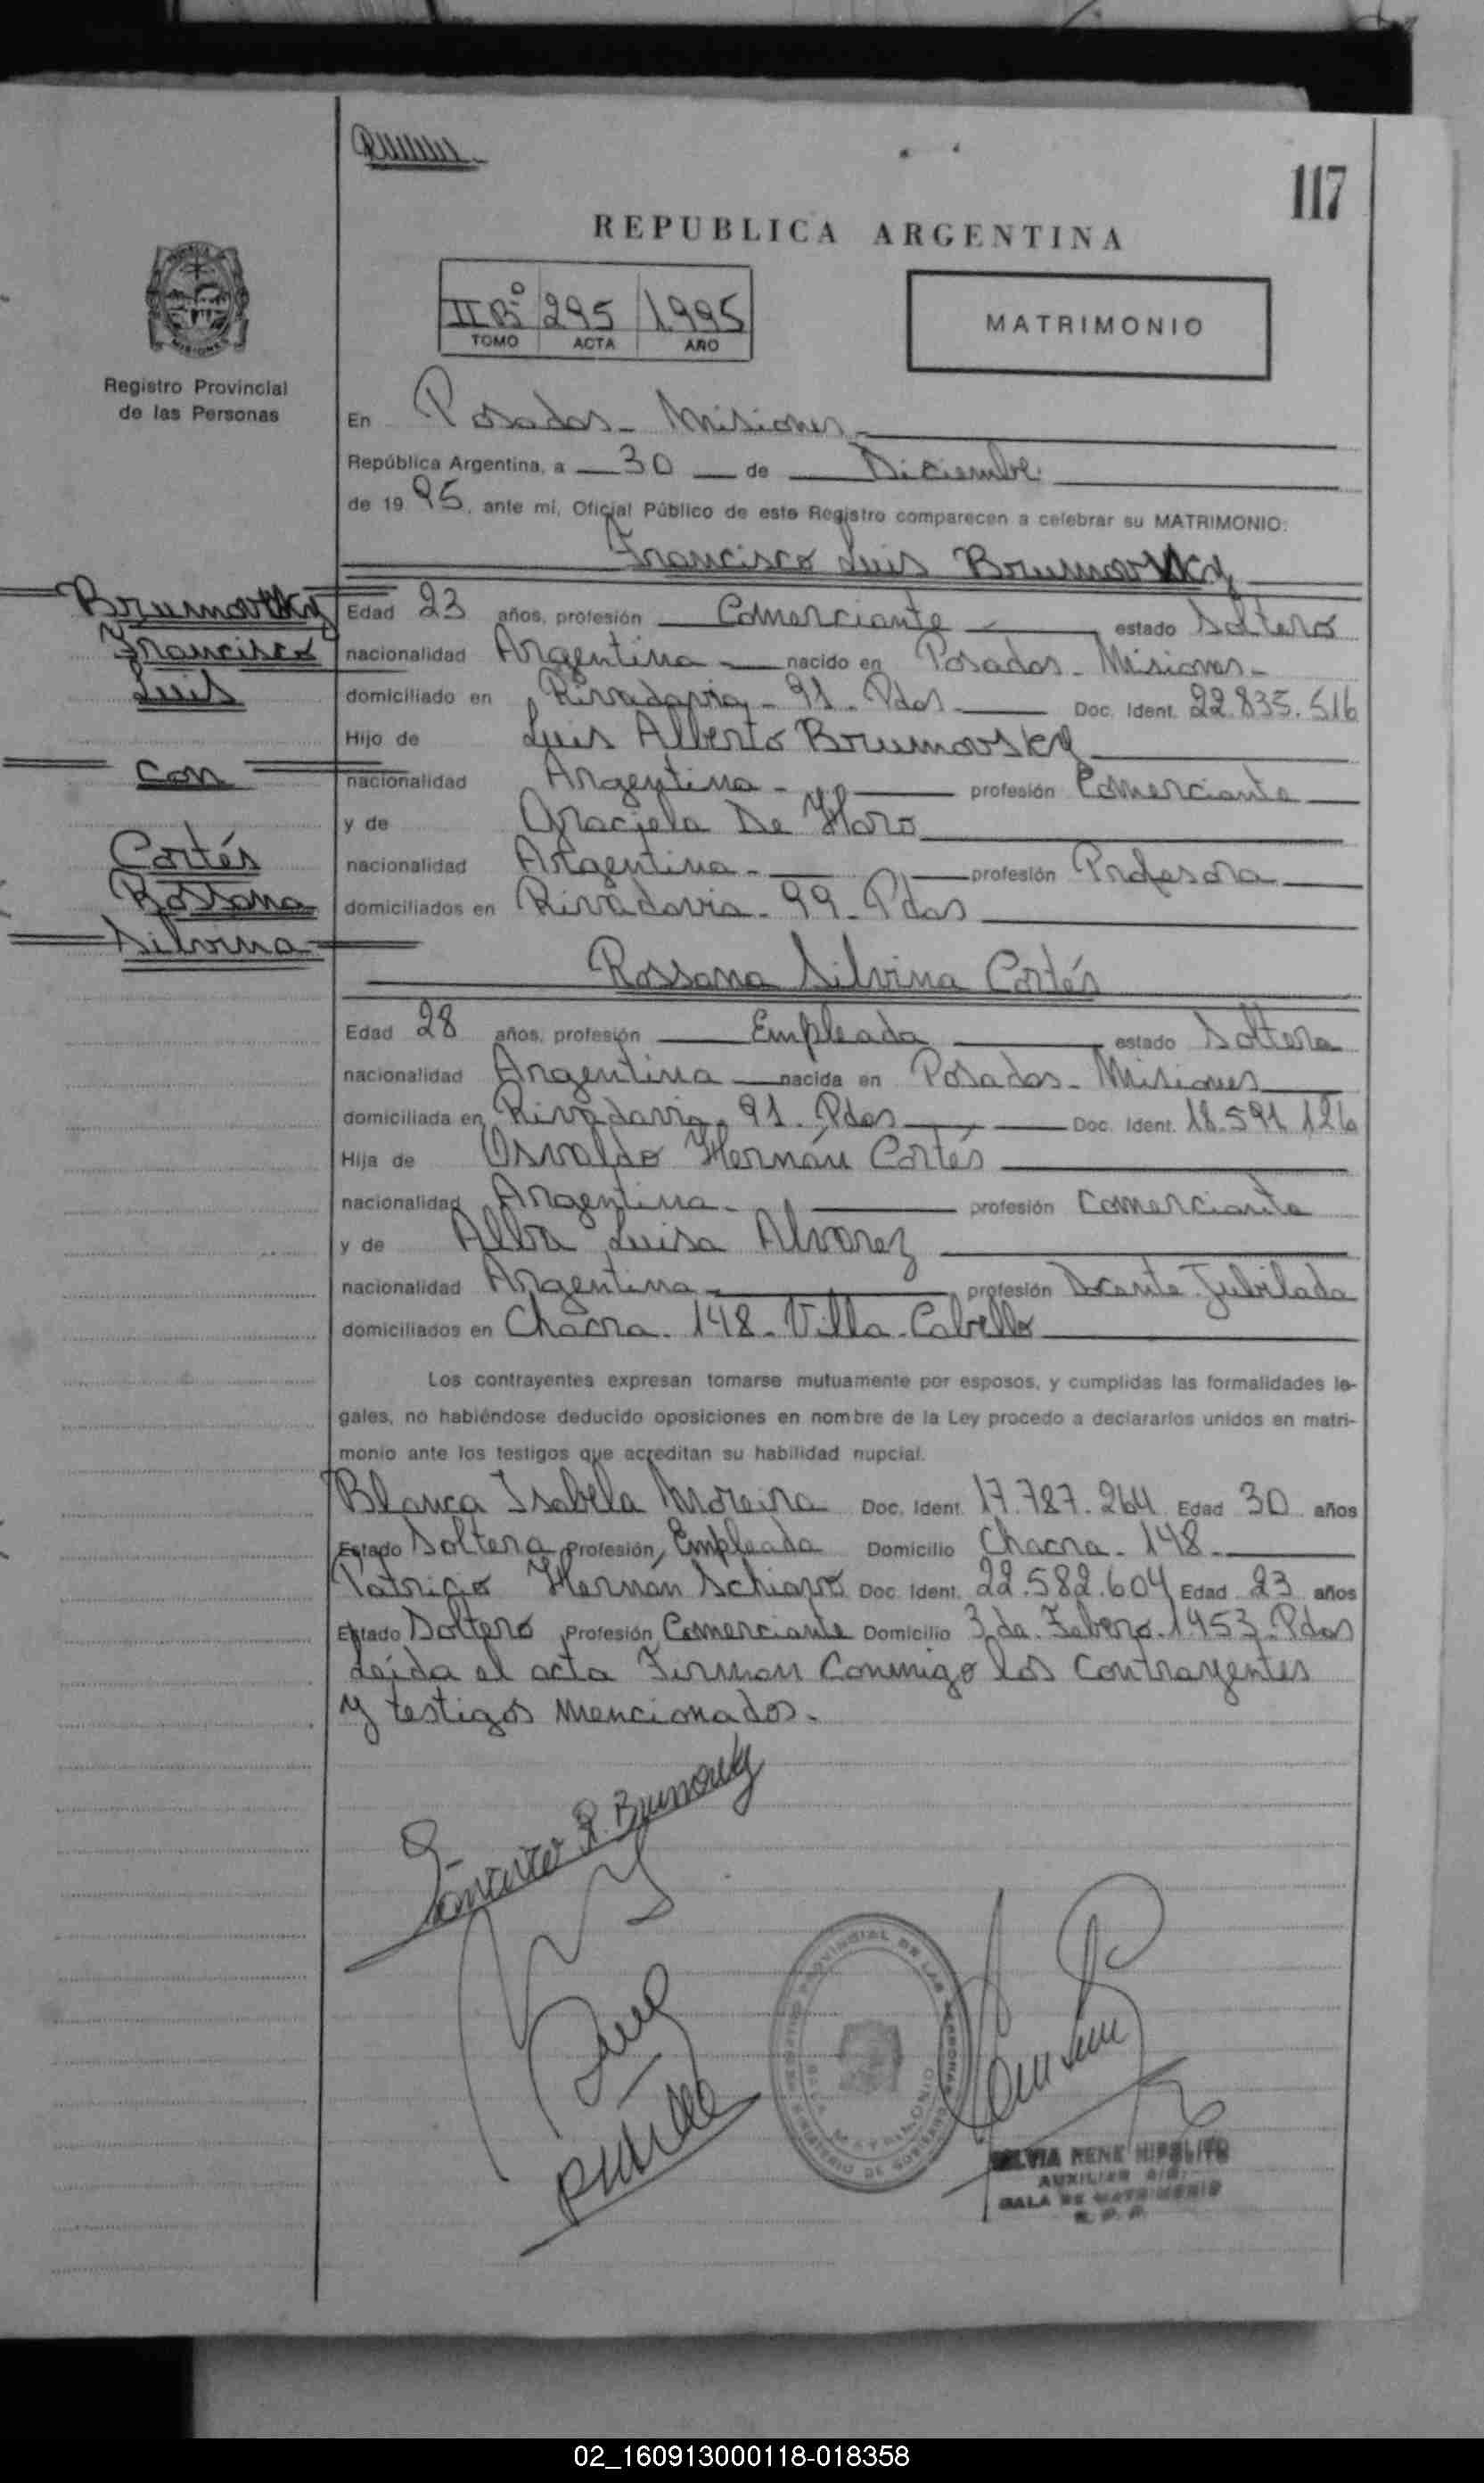 117
REPUBLICA ARGENTINA
IIBº 295 1995
TOMO ACTA AÑO
MATRIMONIO
Registro Provincial
de las Personas
En Posadas - Misiones
República Argentina, a 30 de Diciembre
de 1995, ante mí, Oficial Público de este Registro comparecen a celebrar su MATRIMONIO:
Francisco Luis Brumovsky
Brumovsky
Francisco
Luis
con
Cortés
Rossana
Silvina
Edad 23 años, profesión Comerciante estado Soltero
nacionalidad Argentina nacido en Posadas - Misiones -
domiciliado en Rivadavia - 91 - Pdas Doc. Ident. 22.835.516
Hijo de Luis Alberto Brumovsky
nacionalidad Argentina - profesión Comerciante
y de Graciela De Haro
nacionalidad Argentina - profesión Profesora
domiciliados en Rivadavia - 99 - Pdas
Rossana Silvina Cortés
Edad 28 años, profesión Empleada estado Soltera
nacionalidad Argentina nacida en Posadas - Misiones
domiciliada en Rivadavia - 91 - Pdas Doc. Ident. 18.591.126
Hija de Osvaldo Hernán Cortés
nacionalidad Argentina - profesión Comerciante
y de Alba Luisa Alvarez
nacionalidad Argentina profesión Docente Jubilada
domiciliados en Chacra - 148 - Villa - Cabello
Los contrayentes expresan tomarse mutuamente por esposos, y cumplidas las formalidades le-
gales, no habiéndose deducido oposiciones en nombre de la Ley procedo a declararlos unidos en matri-
monio ante los testigos que acreditan su habilidad nupcial.
Blanca Isabela Moreira Doc. Ident. 17.787.264 Edad 30 años
Estado Soltera Profesión Empleada Domicilio Chacra - 148 -
Patricio Hernán Schiavo Doc. Ident. 22.582.604 Edad 23 años
Estado Soltero Profesión Comerciante Domicilio 3 de Febrero - 1453 - Pdas
Leída el acta Firman Conmigo los Contrayentes
y testigos mencionados.
REGISTRO PROVINCIAL DE LAS PERSONAS
MINISTERIO DE GOBIERNO
MATRIMONIO
SILVIA RENE HIPOLITO
AUXILIAR
SALA DE MATRIMONIO
R. P. P.
02_160913000118-018358